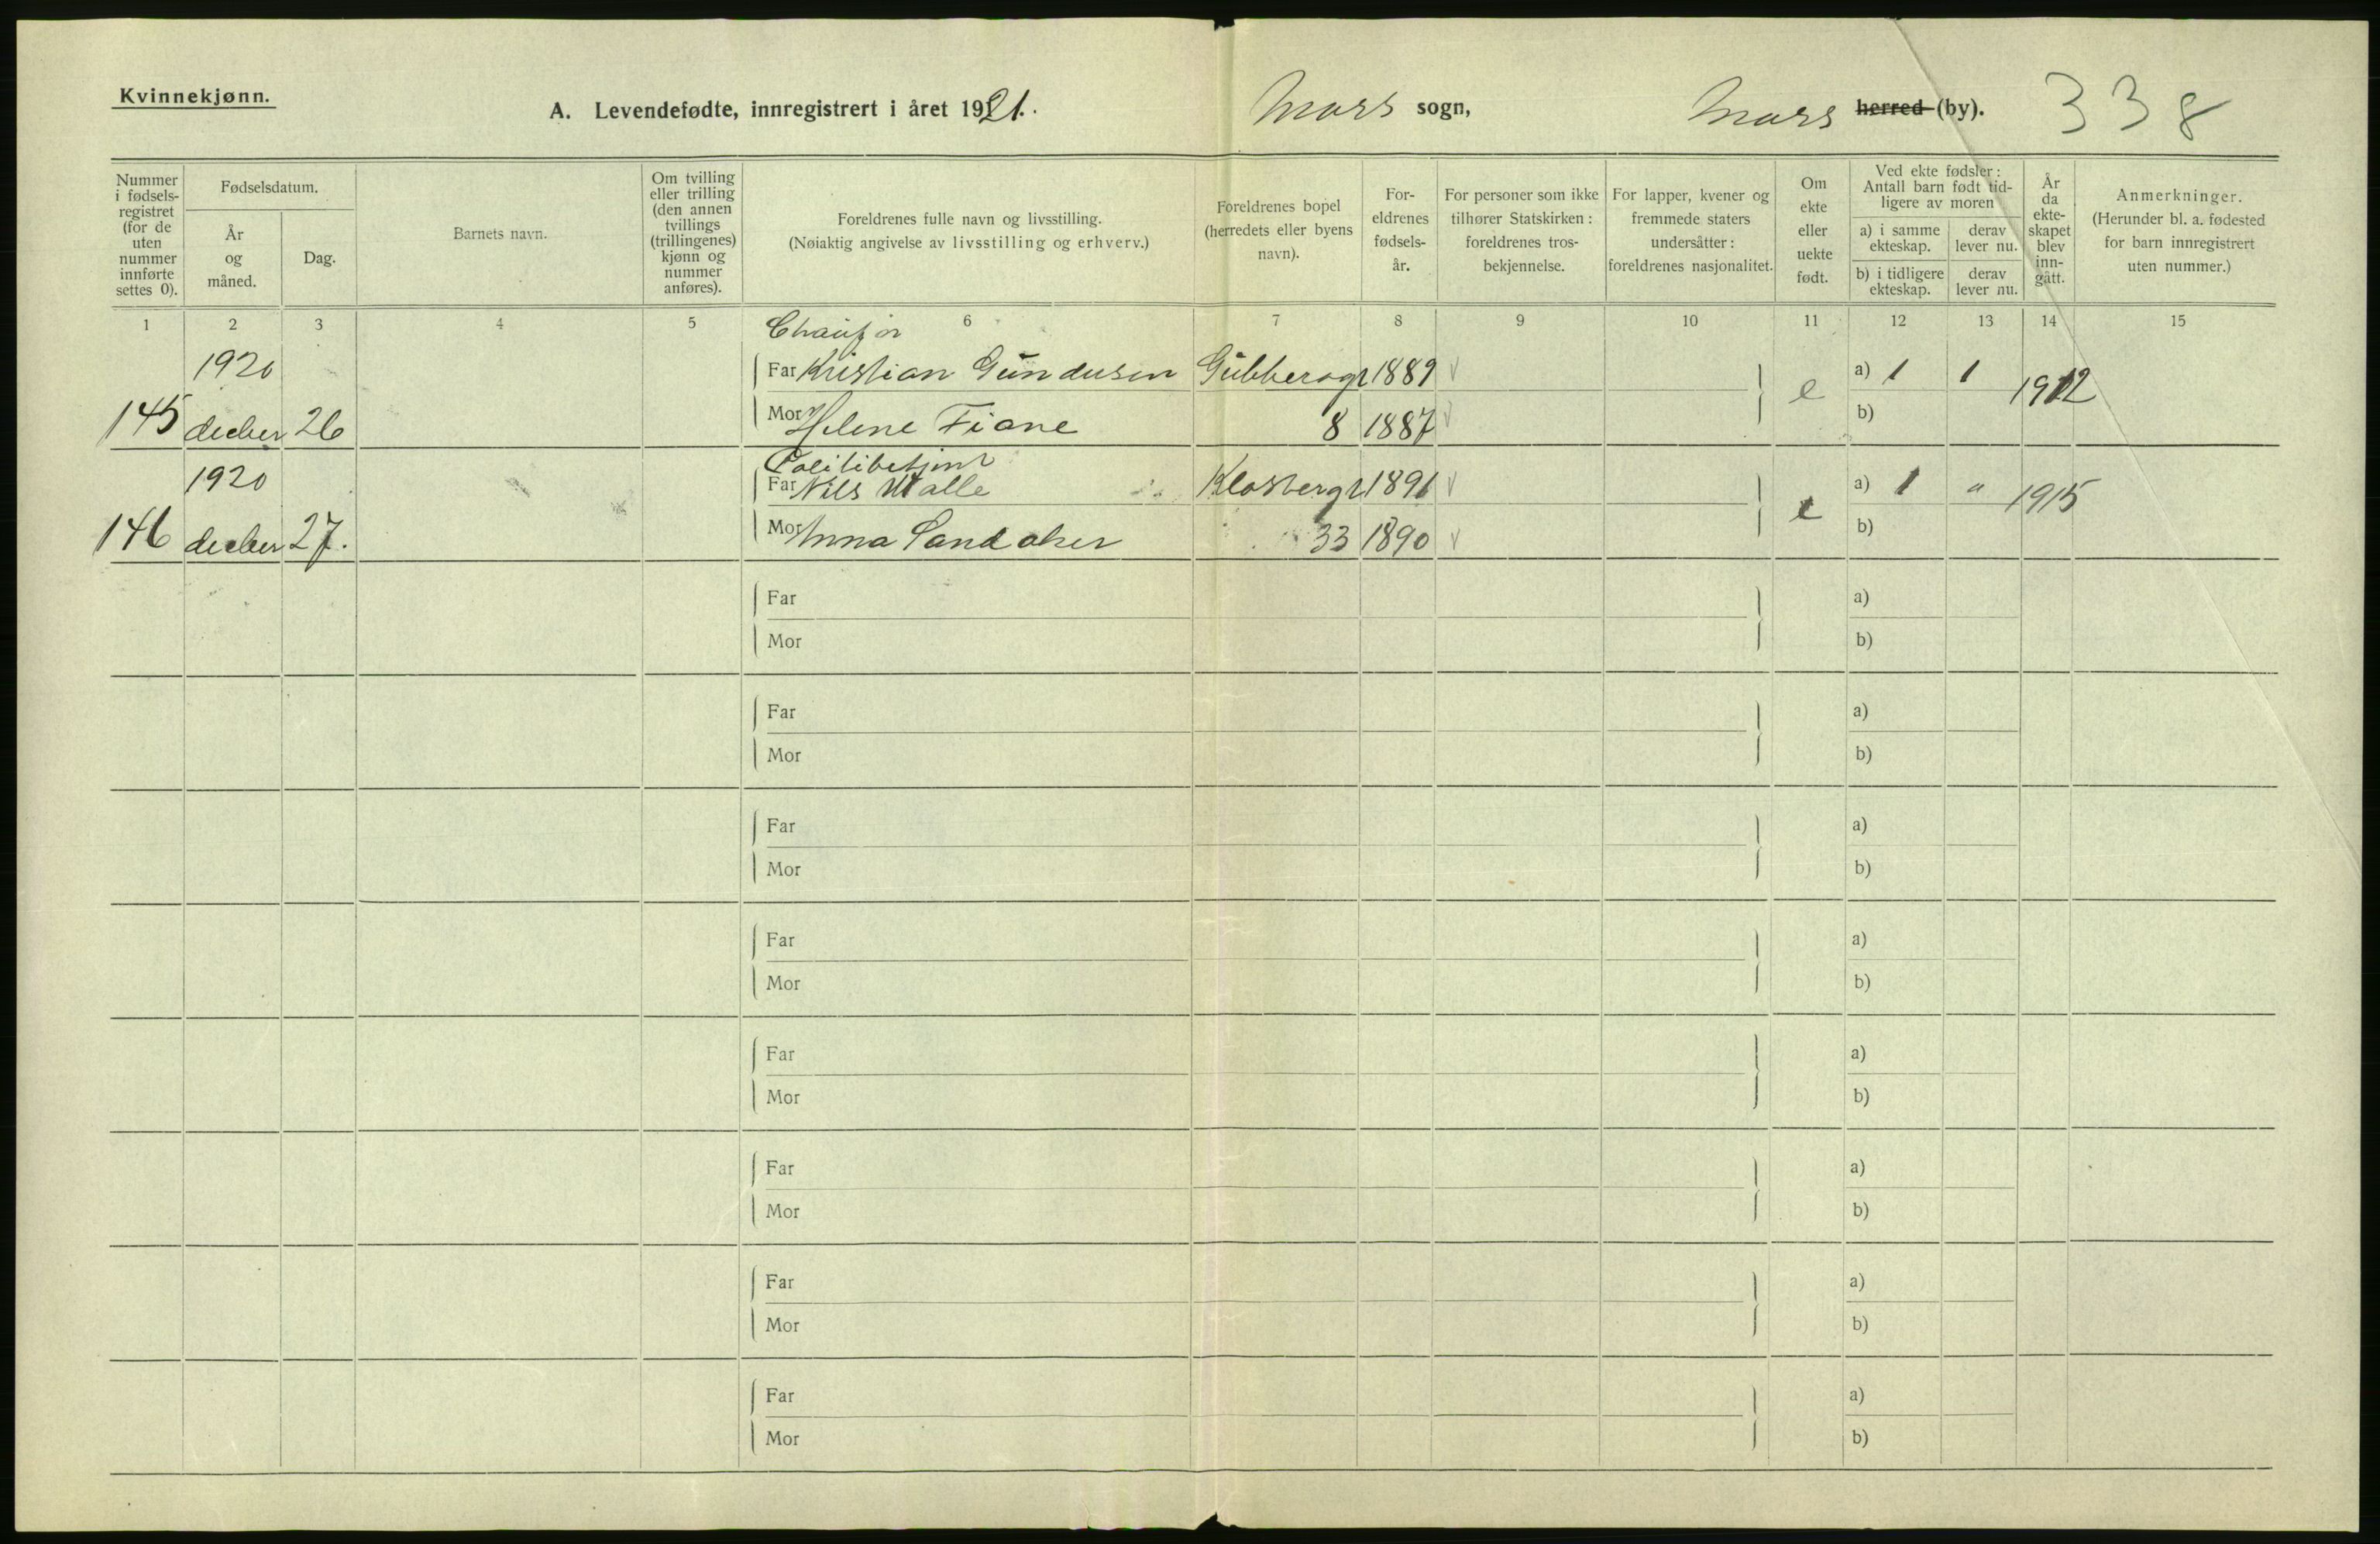 Kvinnekjønn.
A. Levendefødte, innregistrert i året 1921.
Moss sogn,
Moss herred (by).
338
Nummer i fødsels-registret (for de uten nummer innførte settes 0).
Fødselsdatum.
År og måned.
Dag.
Barnets navn.
Om tvilling eller trilling (den annen tvillings (trillingenes) kjønn og nummer anføres).
Foreldrenes fulle navn og livsstilling.
(Nøiaktig angivelse av livsstilling og erhverv.)
Foreldrenes bopel (herredets eller byens navn).
For-eldrenes fødsels-år.
For personer som ikke tilhører Statskirken: foreldrenes tros-bekjennelse.
For lapper, kvener og fremmede staters undersåtter: foreldrenes nasjonalitet.
Om ekte eller uekte født.
Ved ekte fødsler: Antall barn født tid-ligere av moren
a) i samme ekteskap.
derav lever nu.
b) i tidligere ekteskap.
derav lever nu.
År da ekte-skapet blev inn-gått.
Anmerkninger.
(Herunder bl. a. fødested for barn innregistrert uten nummer.)
1 2 3 4 5 6 7 8 9 10 11 12 13 14 15
Chaufør
1920 Far Kristian Gundersen 1889 a) 1 1
145 december 26 Mor Helene Fiane 8 1887 e b) 1912
Politibetjent
1920 Far Nils Walle 1891 a) 1 " 1915
146 december 27. Mor Anna Sandaker 33 1890 e b)
Far a)
Mor b)
Far a)
Mor b)
Far a)
Mor b)
Far a)
Mor b)
Far a)
Mor b)
Far a)
Mor b)
Far a)
Mor b)
Far a)
Mor b)